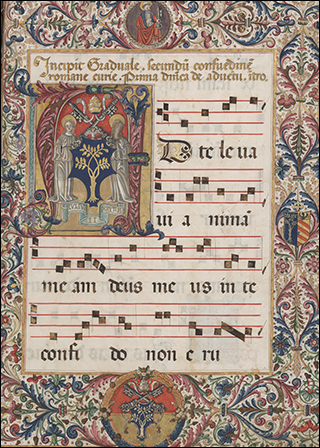 Incipit Graduale, secundũ consuetudinẽ
romane curie. Prima dñica de aduẽtu, ĩtro.
A D te leua
ui animã
me am deus me us in te
confi do non e ru